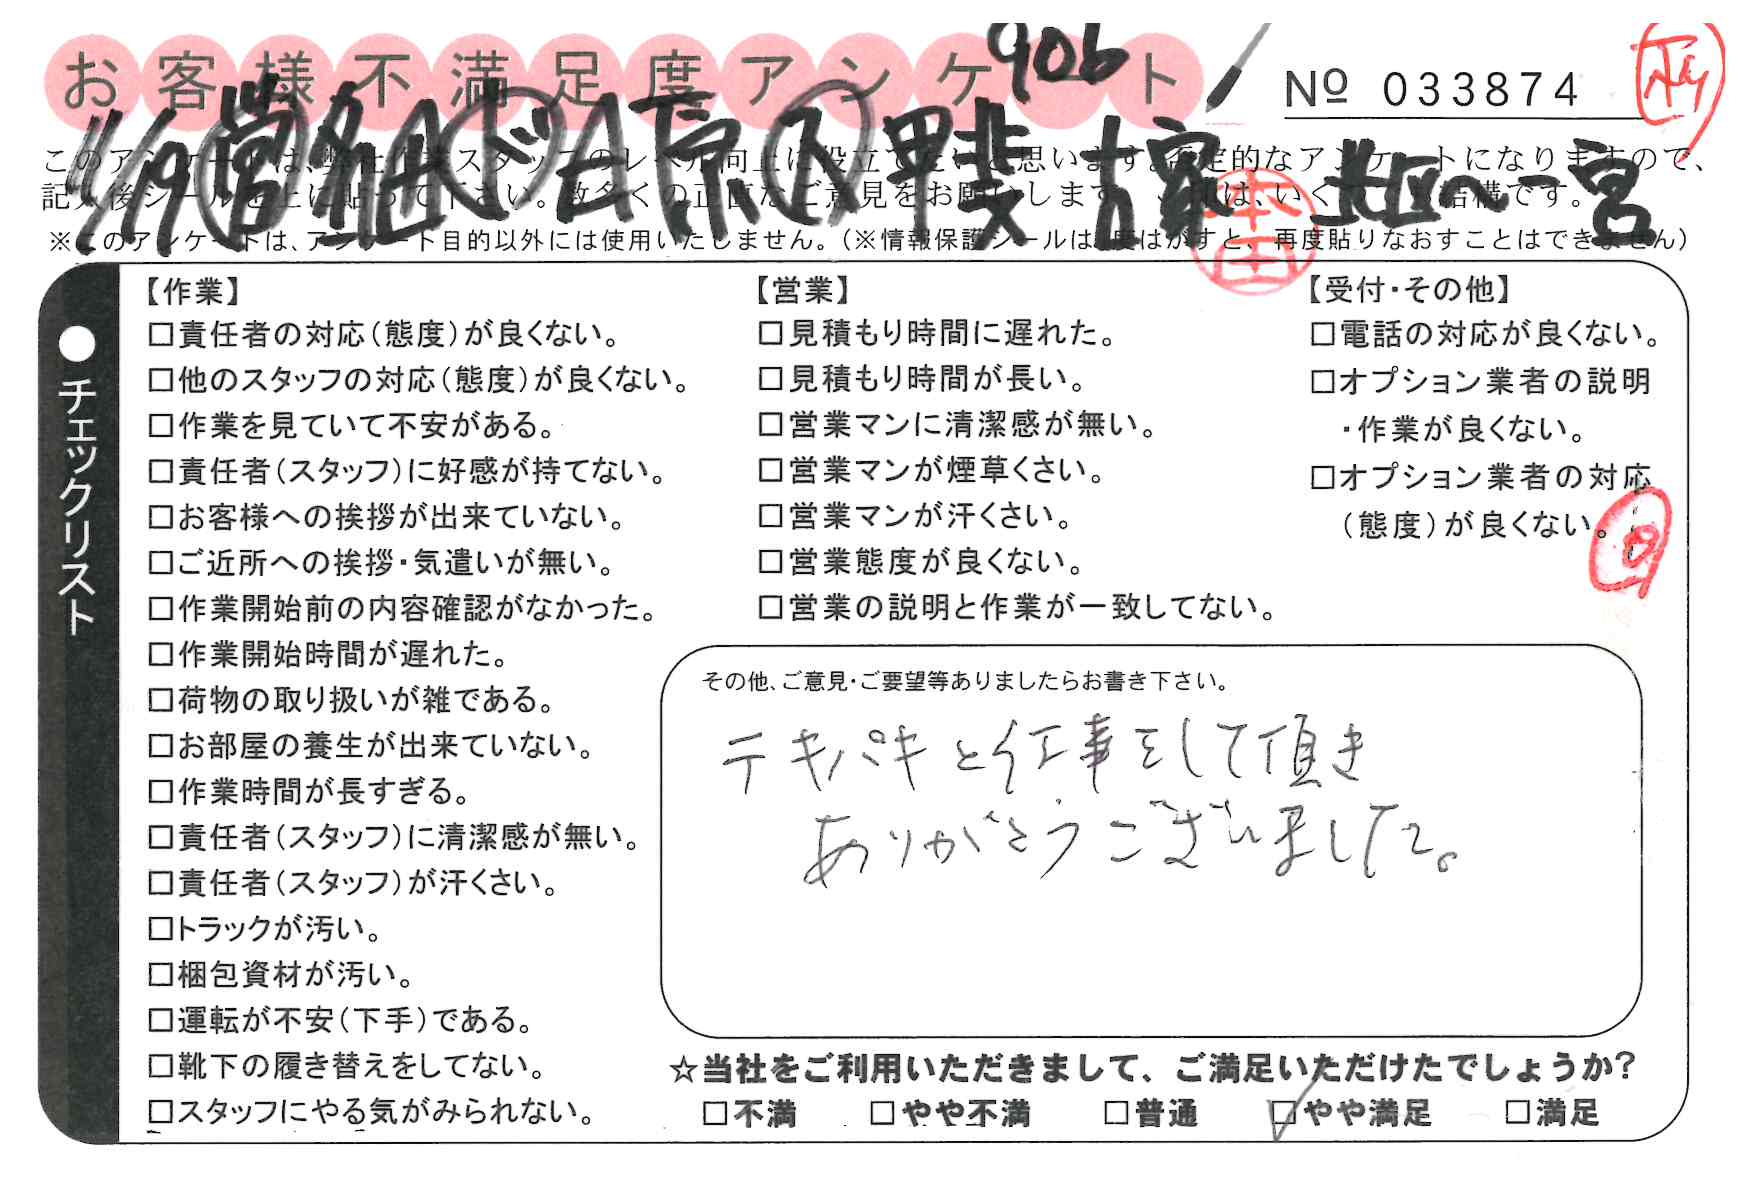 お客様不満足度アンケート
906
№ 033874
11/19
甲斐
一宮
本田
このアンケートは、弊社作業スタッフのレベル向上に役立てたいと思います。否定的なアンケートになりますので、
記入後シールを上に貼って下さい。数多くの正直なご意見をお願いします。シールは、いくつでも結構です。
※このアンケートは、アンケート目的以外には使用いたしません。（※情報保護シールは1度はがすと、再度貼りなおすことはできません）
●チェックリスト
【作業】
□責任者の対応（態度）が良くない。
□他のスタッフの対応（態度）が良くない。
□作業を見ていて不安がある。
□責任者（スタッフ）に好感が持てない。
□お客様への挨拶が出来ていない。
□ご近所への挨拶・気遣いが無い。
□作業開始前の内容確認がなかった。
□作業開始時間が遅れた。
□荷物の取り扱いが雑である。
□お部屋の養生が出来ていない。
□作業時間が長すぎる。
□責任者（スタッフ）に清潔感が無い。
□責任者（スタッフ）が汗くさい。
□トラックが汚い。
□梱包資材が汚い。
□運転が不安（下手）である。
□靴下の履き替えをしてない。
□スタッフにやる気がみられない。
【営業】
□見積もり時間に遅れた。
□見積もり時間が長い。
□営業マンに清潔感が無い。
□営業マンが煙草くさい。
□営業マンが汗くさい。
□営業態度が良くない。
□営業の説明と作業が一致してない。
【受付・その他】
□電話の対応が良くない。
□オプション業者の説明
・作業が良くない。
□オプション業者の対応
（態度）が良くない。
その他、ご意見・ご要望等ありましたらお書き下さい。
テキパキと仕事をして頂き
ありがとうございました。
☆当社をご利用いただきまして、ご満足いただけたでしょうか?
□不満 □やや不満 □普通 □やや満足 □満足